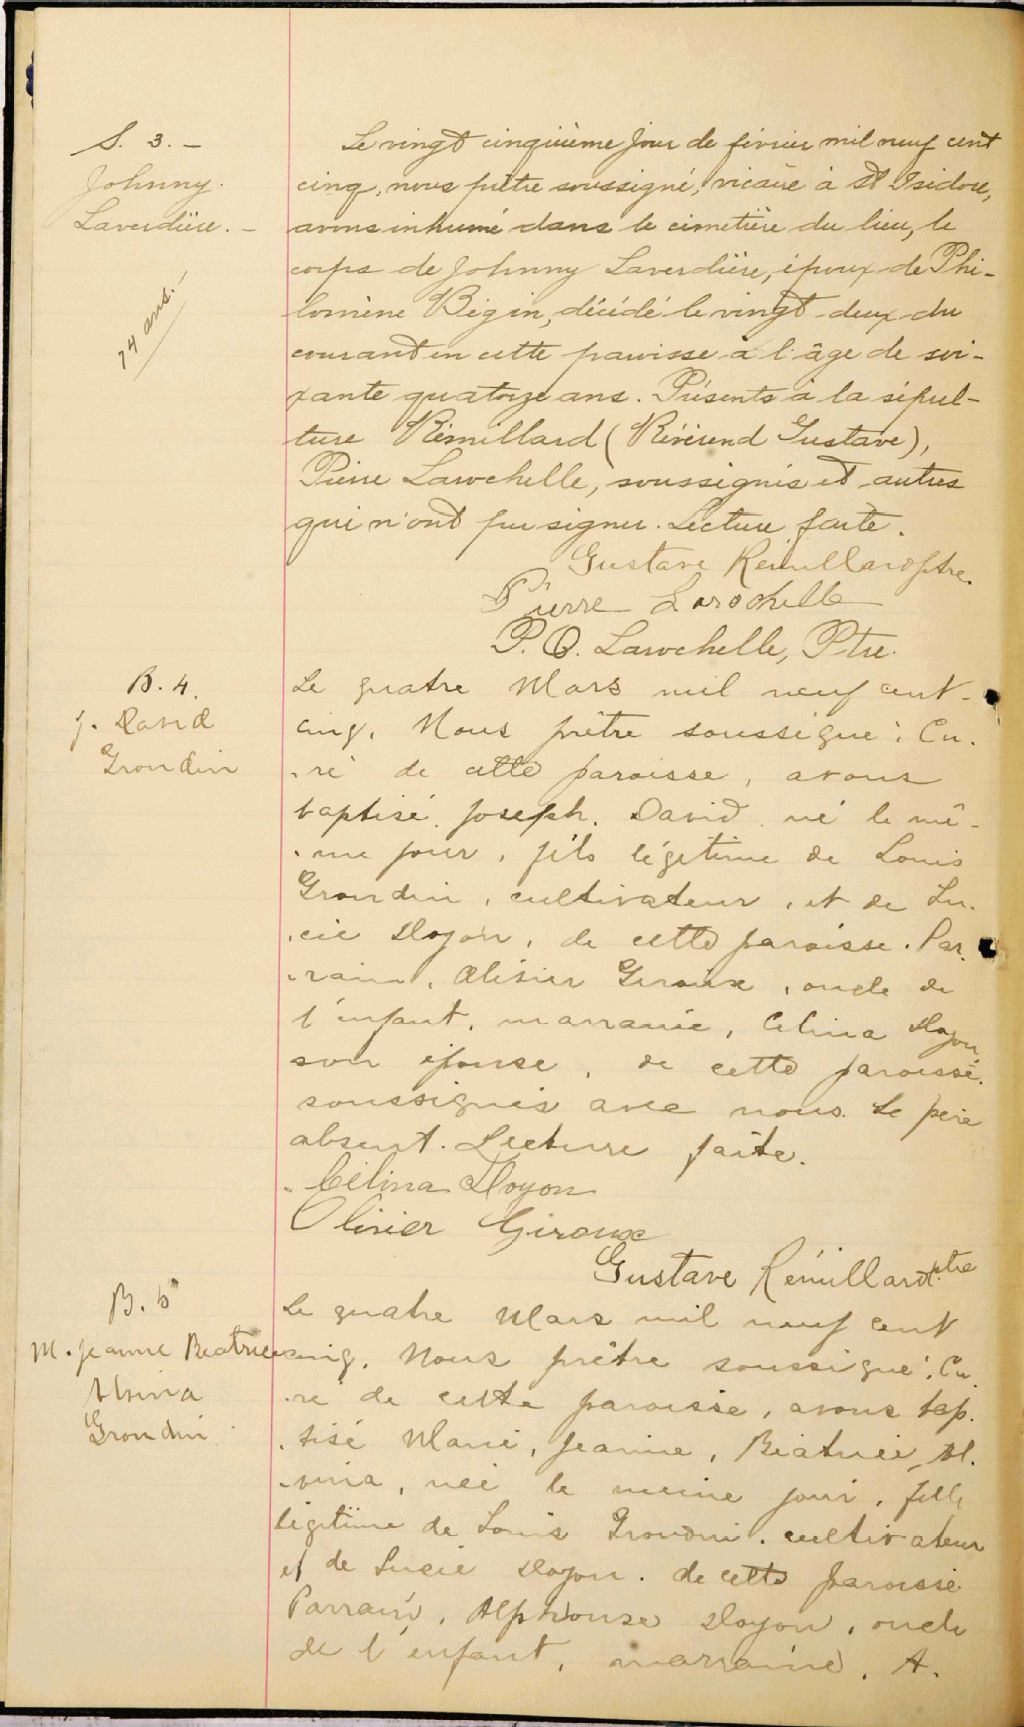 S. 3. –
Johnny
Laverdière. –
74 ans. –
Le vingt cinquième jour de février mil neuf cent
cinq, nous prêtre soussigné, vicaire à St Isidore,
avons inhumé dans le cimetière du lieu, le
corps de Johnny Laverdière, époux de Phi-
lomène Bégin, décédé le vingt-deux du
courant en cette paroisse à l'âge de soi-
xante quatorze ans. Présents à la sépul-
ture Rémillard (Révérend Gustave),
Pierre Larochelle, soussignés et autres
qui n'ont pu signer. Lecture faite.
Gustave Rémillard ptre.
Pierre Larochelle
P. O. Larochelle, Ptre.
B. 4.
J. David
Grondin
Le quatre Mars mil neuf cent-
cinq, Nous prêtre soussigné, Cu-
-ré de cette paroisse, avons
baptisé Joseph, David, né le mê-
-me jour, fils légitime de Louis
Grondin, cultivateur, et de Lu-
-cie Doyon, de cette paroisse. Par-
-rain, Olivier Giroux, oncle de
l'enfant, marraine, Célina Doyon
son épouse, de cette paroisse.
soussignés avec nous. Le père
absent. Lecture faite.
Célina Doyon
Olivier Giroux
Gustave Rémillard ptre
B. 5
M. Jeanne Beatrice
Alvina
Grondin
Le quatre Mars mil neuf cent
cinq, Nous prêtre soussigné, Cu-
-ré de cette paroisse, avons bap-
-tisé Marie, Jeanne, Béatrice, Al-
-vina, née le même jour, fille
légitime de Louis Grondin, cultivateur
et de Lucie Doyon. de cette paroisse
Parrain, Alphonse Doyon, oncle
de l'enfant, marraine, A.